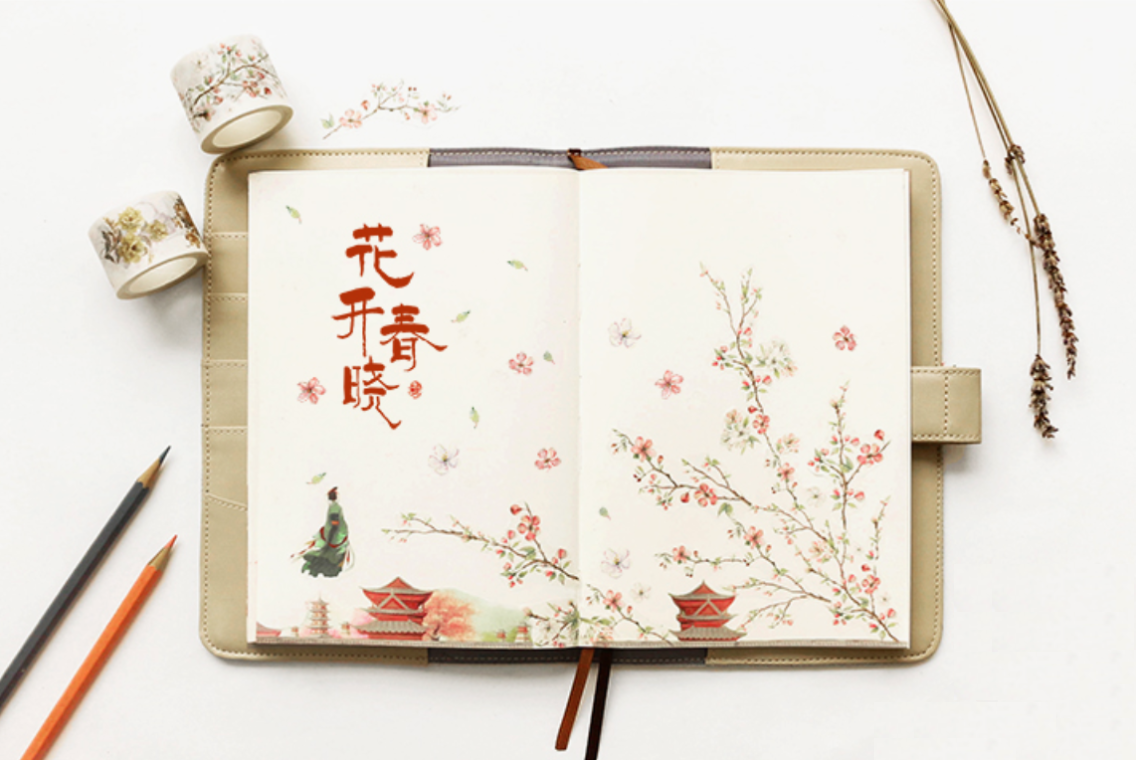 花开春晓